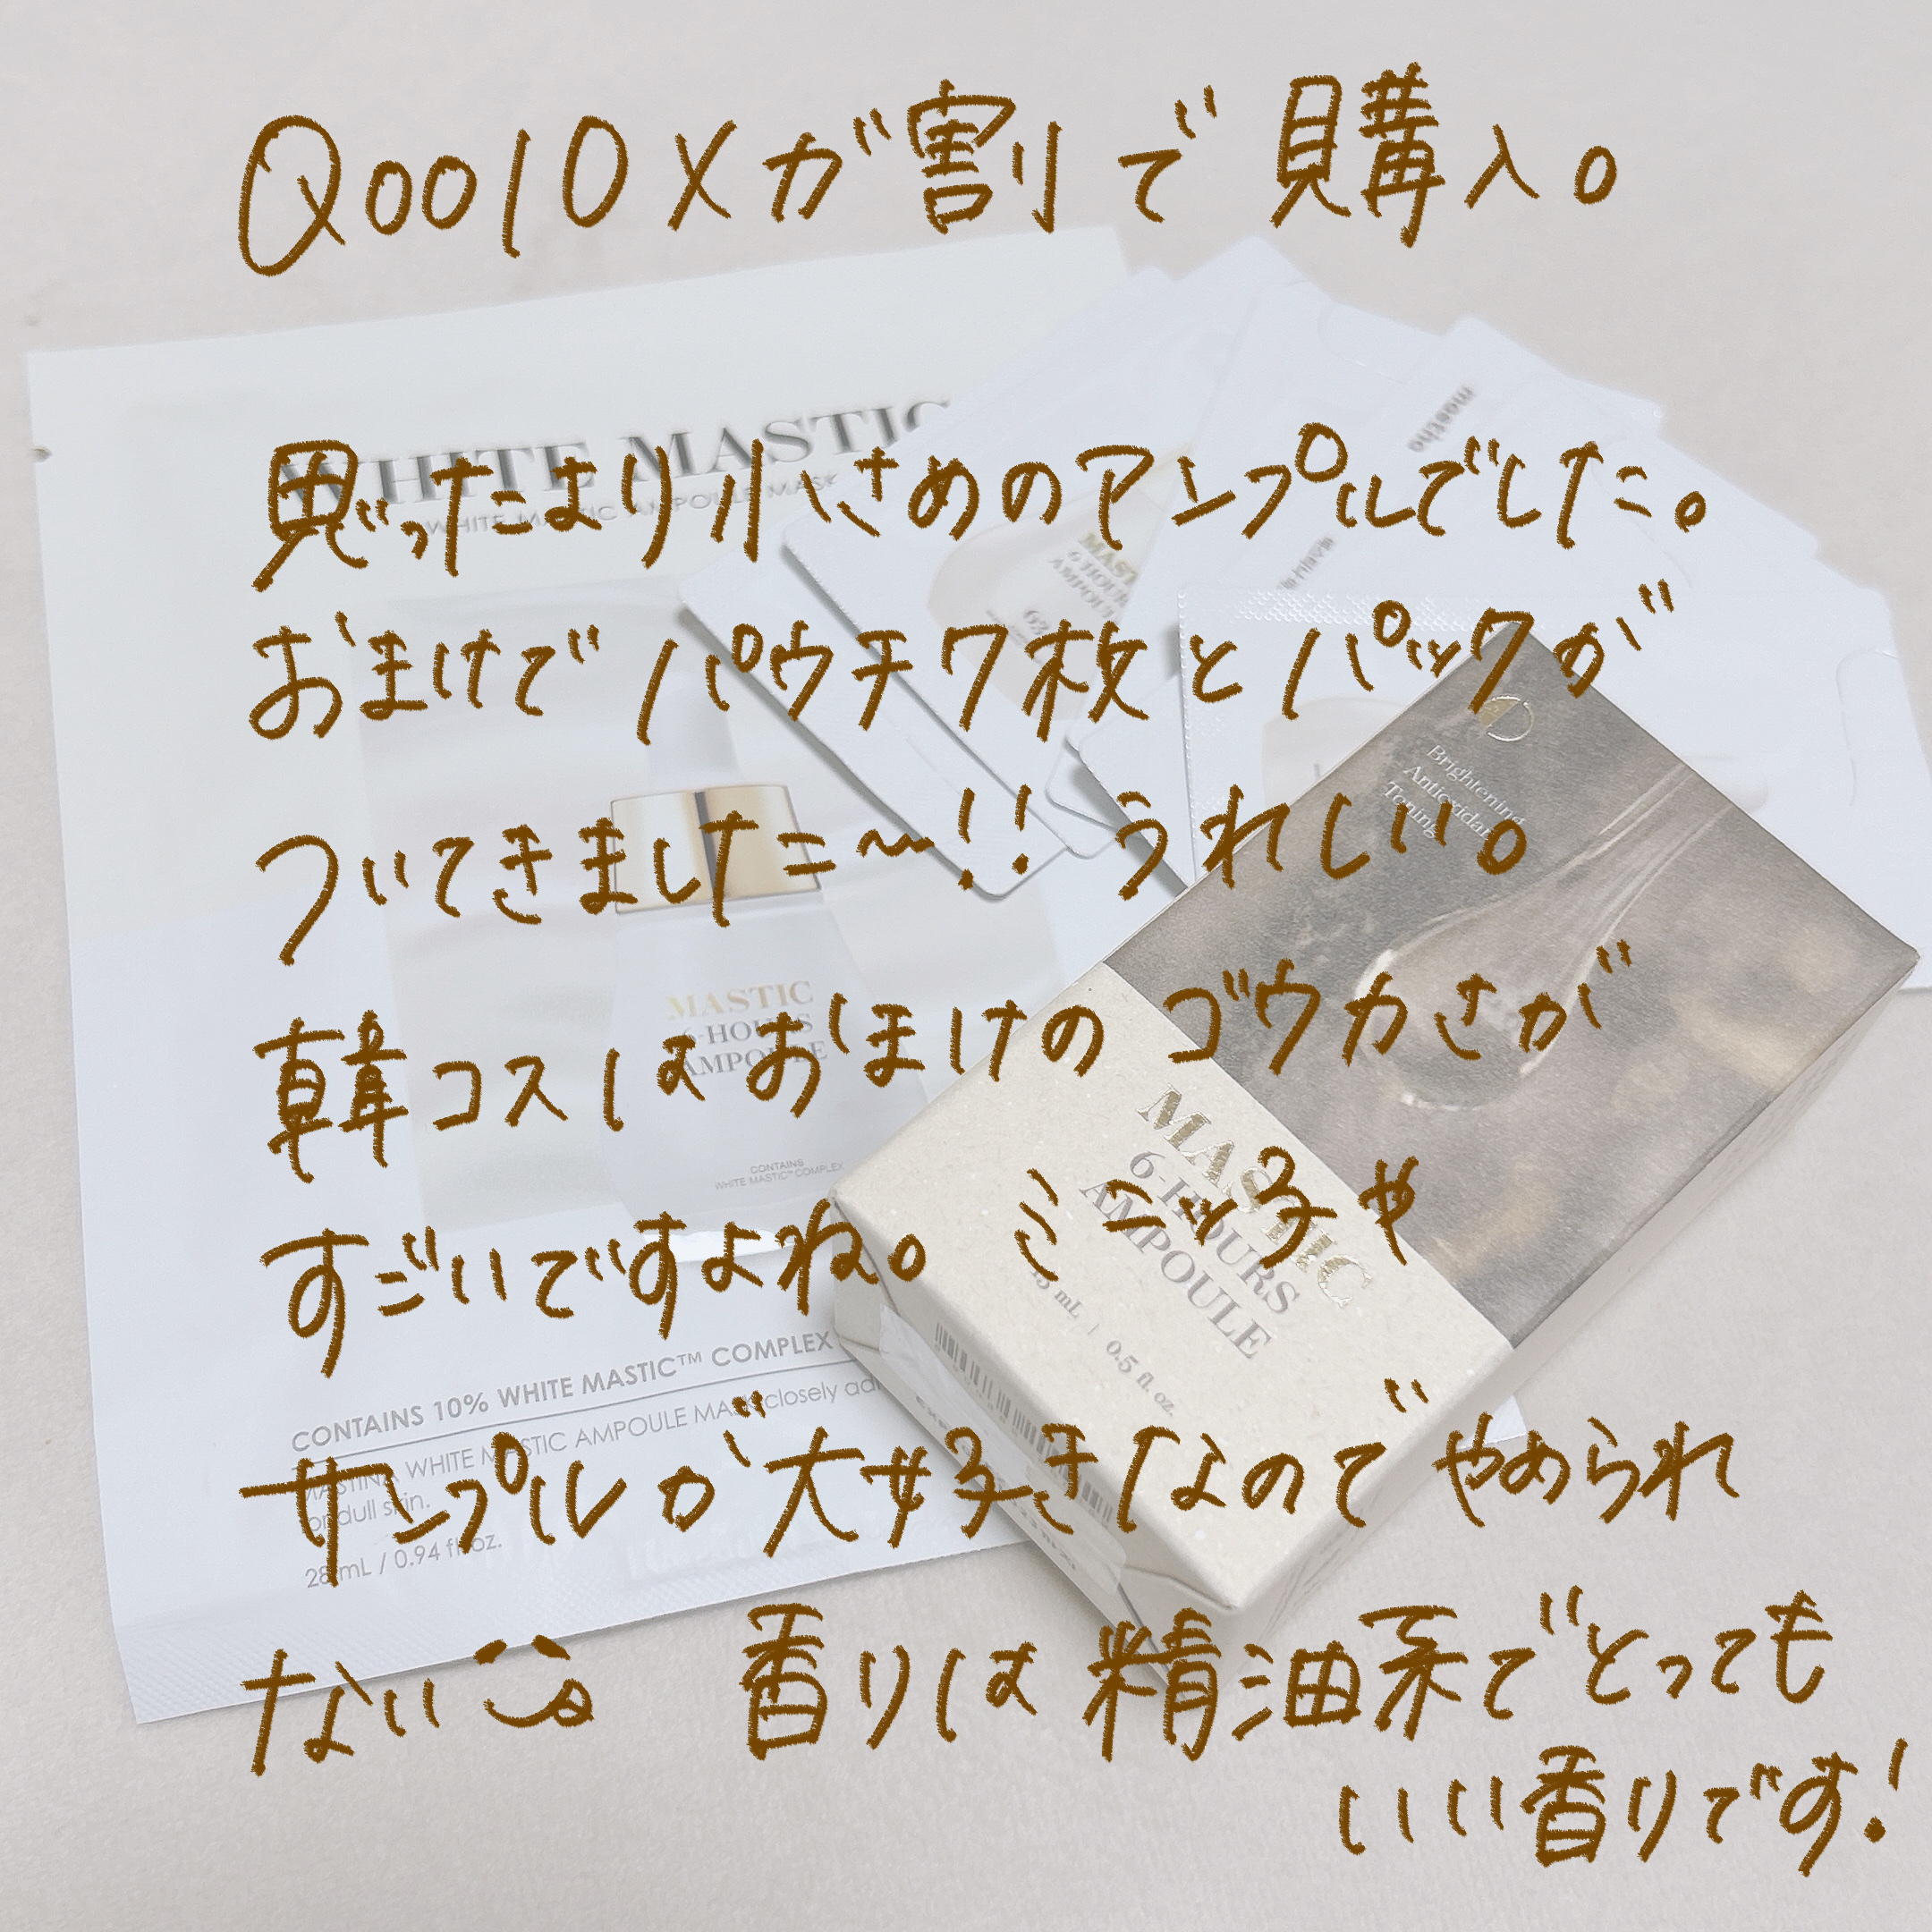 Qoo10メガ割で購入。
思ったより小さめのアンプルでした。
おまけでパウチ7枚とパックが
ついてきました〜!!うれしい。
韓コスはおまけのゴウカさが
すごいですよね。ミニッみや
サンプルが大好きなのでやめられ
ない 香りは精油系でとっても
いい香りです!
WHITE MASTIC
WHITE MASTIC AMPOULE MASK
MASTIC
6-HOURS
AMPOULE
CONTAINS
WHITE MASTIC™ COMPLEX
CONTAINS 10% WHITE MASTIC™ COMPLEX
MASTINA WHITE MASTIC AMPOULE MASK closely
dull skin.
28 mL / 0.94 fl. oz.
MAST
6 HOUR
AMPOU
Brightening
Antioxidant
Toning
MASTIC
6-HOURS
AMPOULE
15 mL | 0.5 fl. oz.